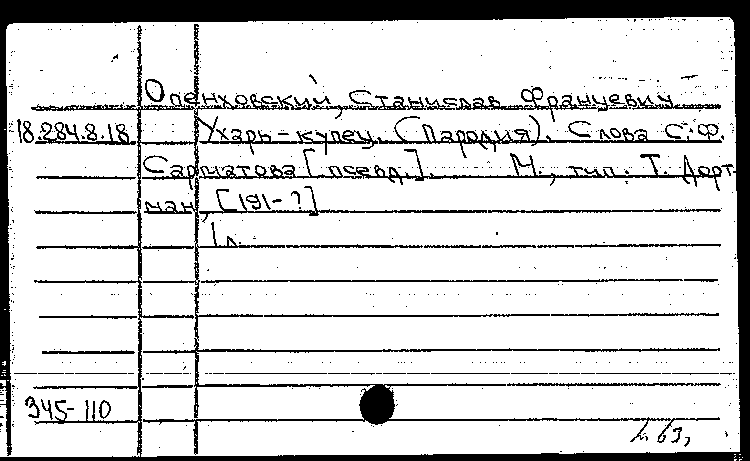 Опенховский, Станислав Францевич
18.284.8.18 Ухарь-купец. (Пародия). Слова С.Ф.
Сарматова [псевд.]. М., тип. Т. Дорт-
ман, [191-?]
1 л.
345-110
63,